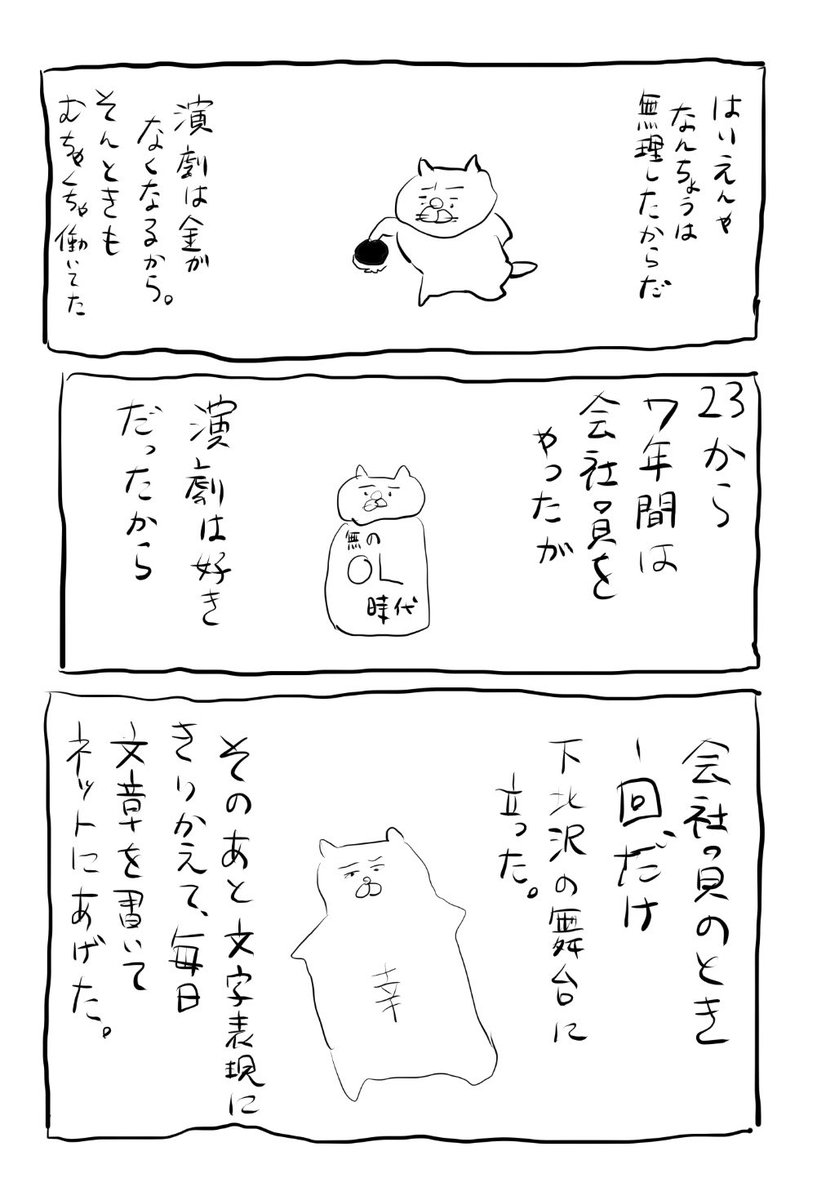 はいえんや
なんちょうは
無理したからだ
演劇は金が
なくなるから。
そんときも
むちゃくちゃ働いてた
23から
7年間は
会社員を
やったが
無の
OL
時代
演劇は好き
だったから
会社員のとき
一回だけ
下北沢の舞台に
立った。
幸
そのあと文字表現に
きりかえて、毎日
文章を書いて
ネットにあげた。